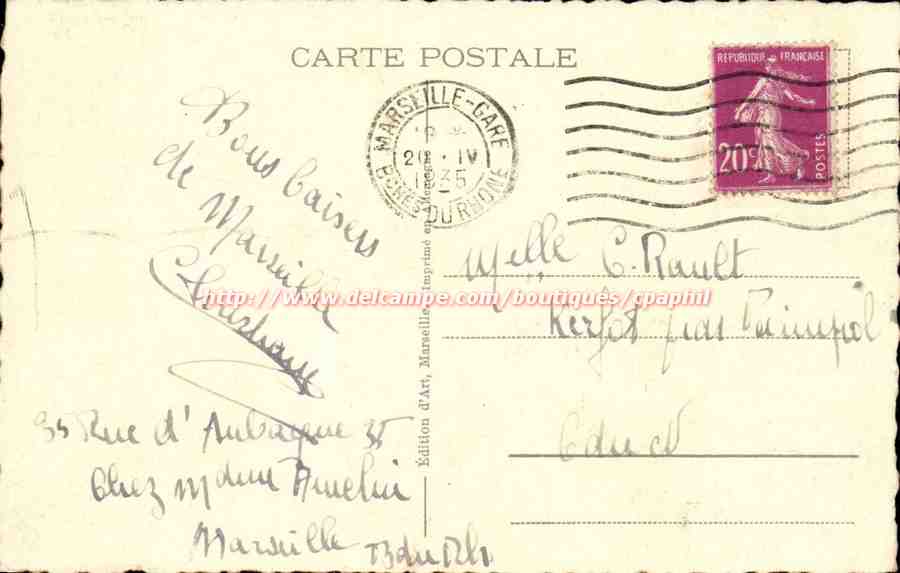 CARTE POSTALE
MARSEILLE-GARE
20 · IV
1935
BCHES DU RHONE
REPUBLIQUE FRANÇAISE
20c
POSTES
Bons baisers
de Marseille
Christiane
35 Rue d'Aubagne 35
Chez Mdme Amelin
Marseille B du Rh
Édition d'Art, Marseille Imprimé en
Melle C. Rault
Kerfot près Paimpol
C du N
http://www.delcampe.com/boutiques/cpaphil